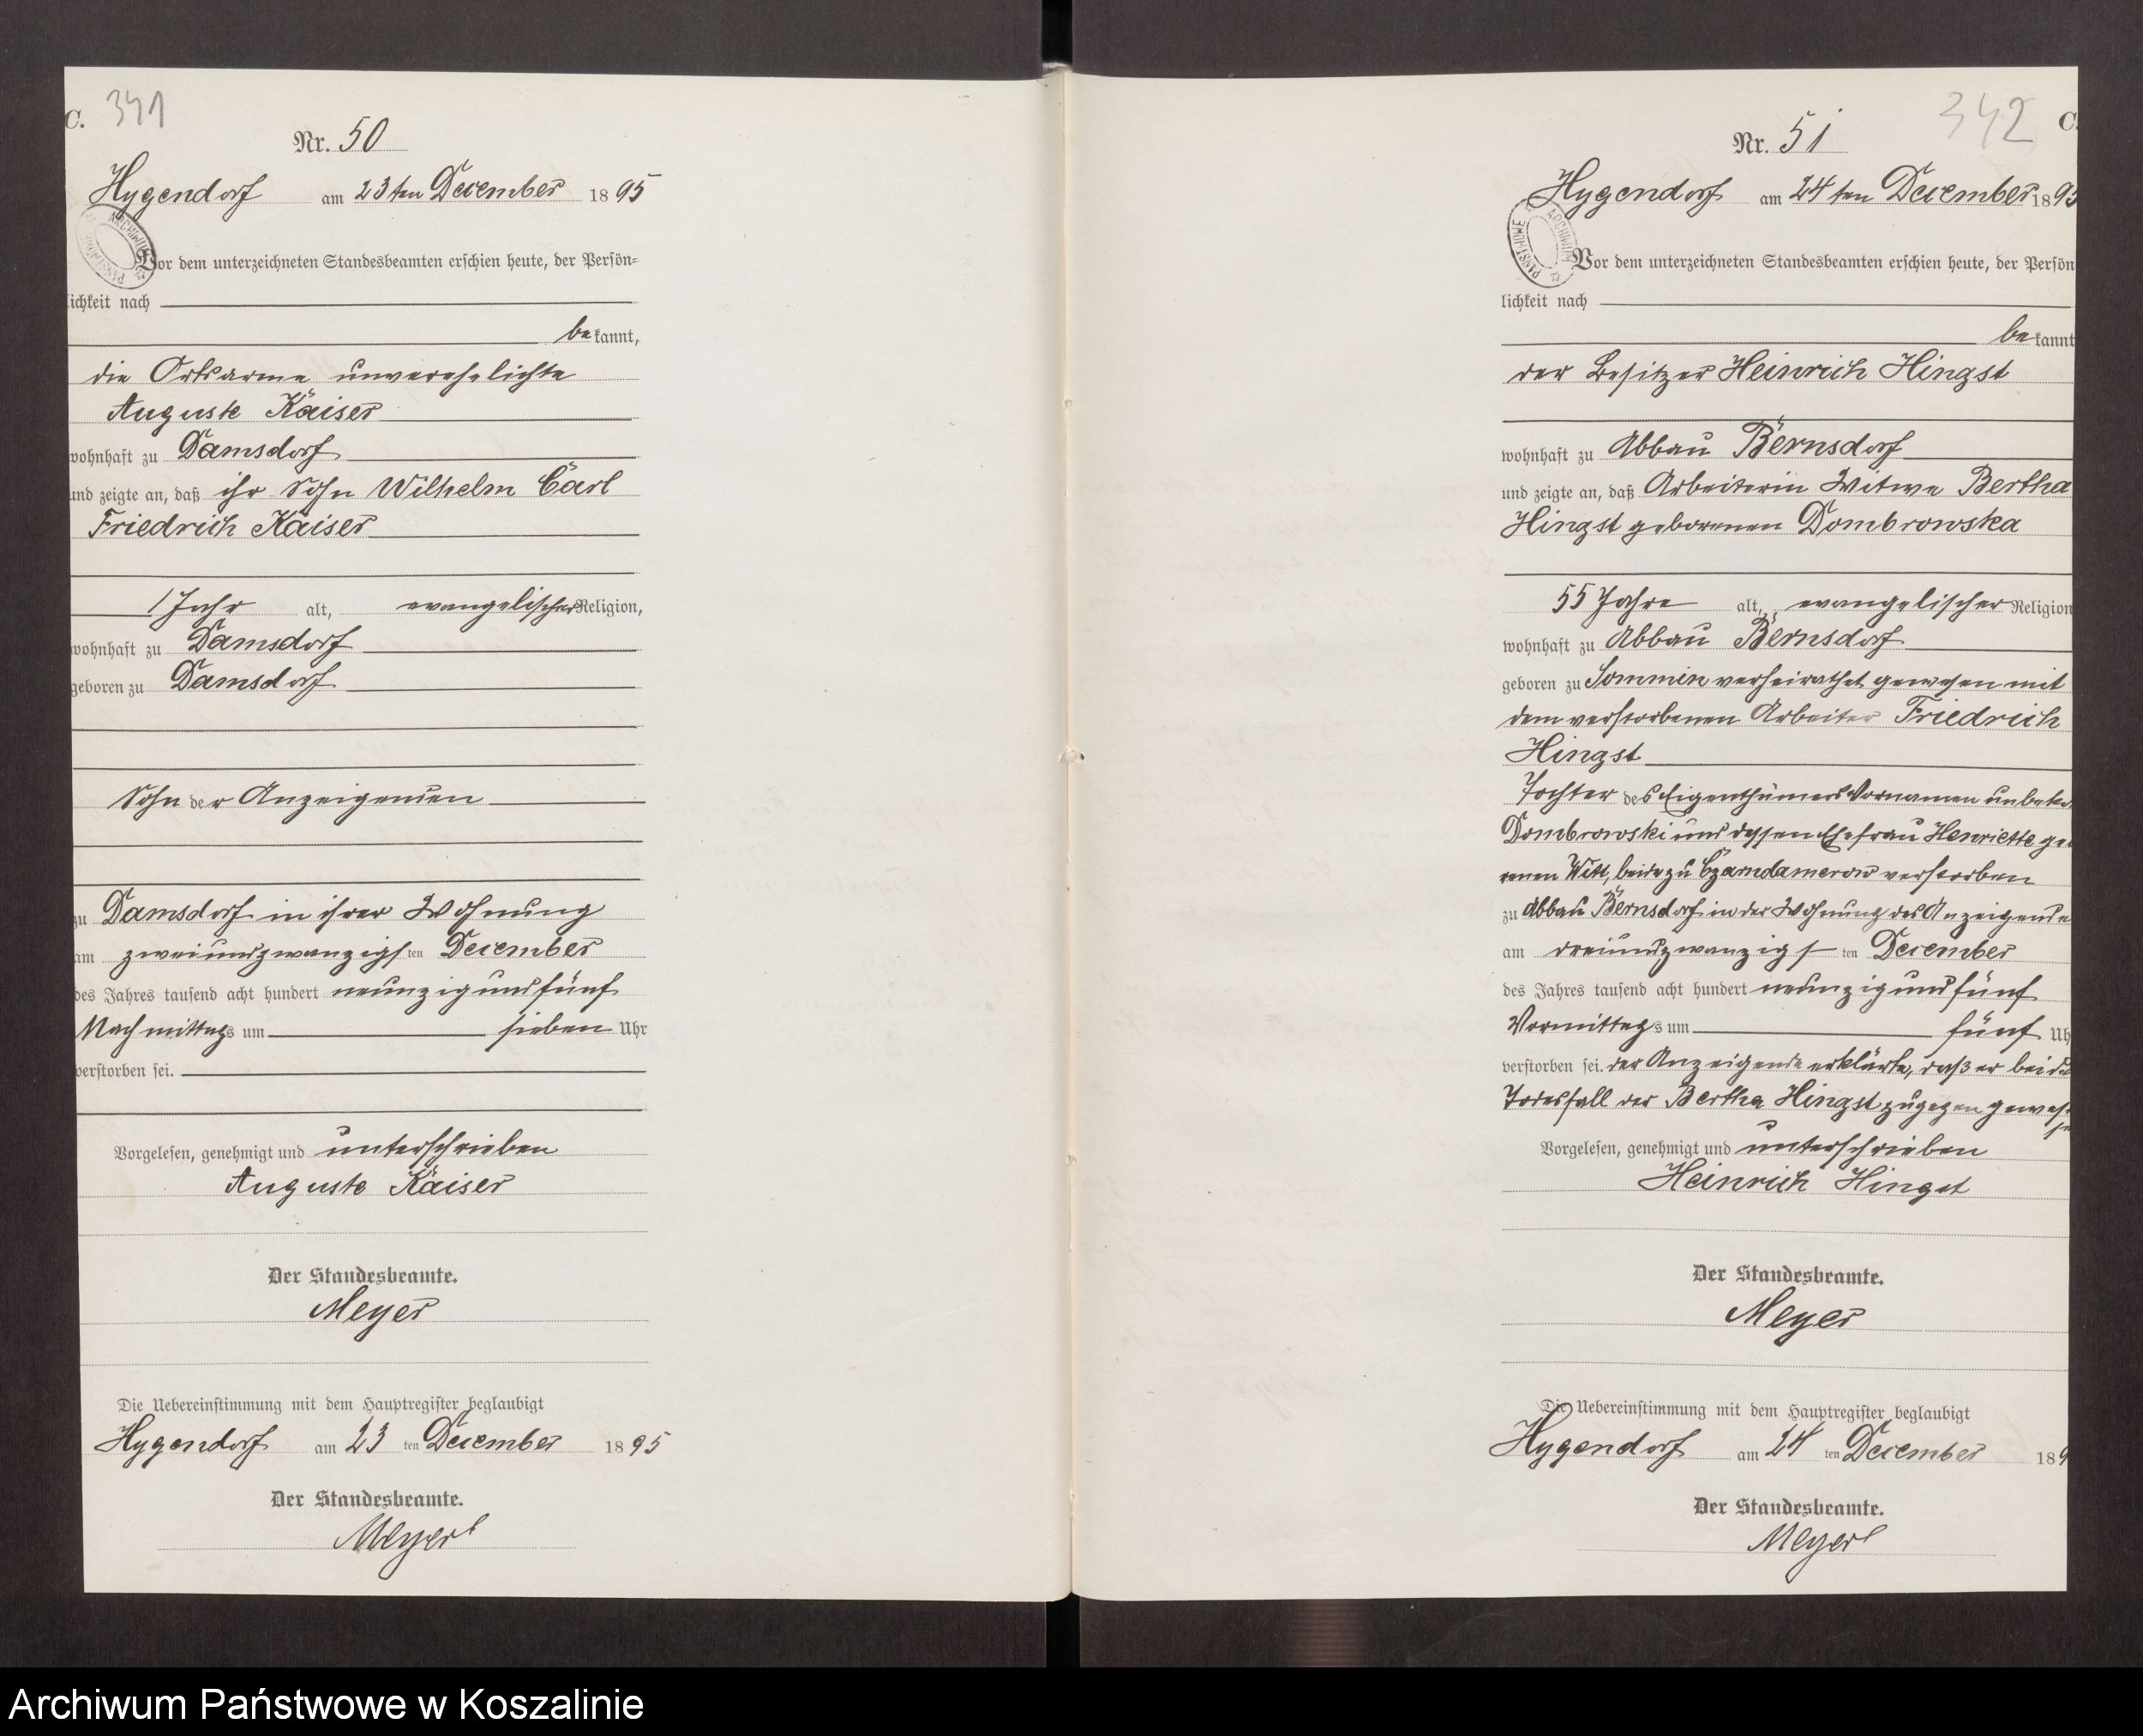 C. 341
Nr. 50
Hygendorf am 23ten December 1895
ARCHIWUM PAŃSTWOWE
Vor dem unterzeichneten Standesbeamten erschien heute, der Persön-
lichkeit nach
bekannt,
die Ortsarme unverehelichte
Auguste Kaiser
wohnhaft zu Damsdorf
und zeigte an, daß ihr Sohn Wilhelm Carl
Friedrich Kaiser
1 Jahr alt, evangelischer Religion,
wohnhaft zu Damsdorf
geboren zu Damsdorf
Sohn der Anzeigenden
zu Damsdorf in ihrer Wohnung
am zweiundzwanzigsten December
des Jahres tausend acht hundert neunzig und fünf
Nachmittags um sieben Uhr
verstorben sei.
Vorgelesen, genehmigt und unterschrieben
Auguste Kaiser
Der Standesbeamte.
Meyer
Die Uebereinstimmung mit dem Hauptregister beglaubigt
Hygendorf am 23 ten December 1895
Der Standesbeamte.
Meyer
342 C.
Nr. 51
Hygendorf am 24ten December 1895
ARCHIWUM PAŃSTWOWE
Vor dem unterzeichneten Standesbeamten erschien heute, der Persön
lichkeit nach
bekannt
der Besitzer Heinrich Hingst
wohnhaft zu Abbau Bernsdorf
und zeigte an, daß Arbeiterin Witwe Bertha
Hingst geborenen Dombrowska
55 Jahre alt, evangelischer Religion
wohnhaft zu Abbau Bernsdorf
geboren zu Sommin verheirathet gewesen mit
dem verstorbenen Arbeiter Friedrich
Hingst
Tochter des Eigenthümers Vornamen unbeka
Dombrowski und dessen Ehefrau Henriette ge
renen Witt, beide zu Czarndamerow verstorben
zu Abbau Bernsdorf in der Wohnung des Anzeigende
am dreiundzwanzigsten December
des Jahres tausend acht hundert neunzig und fünf
Vormittags um fünf Uh
verstorben sei. der Anzeigende erklärte, daß er bei d
Todesfall der Bertha Hingst zugegen gewes
Vorgelesen, genehmigt und unterschrieben
Heinrich Hingst
Der Standesbeamte.
Meyer
Die Uebereinstimmung mit dem Hauptregister beglaubigt
Hygendorf am 24 ten December 189
Der Standesbeamte.
Meyer
Archiwum Państwowe w Koszalinie